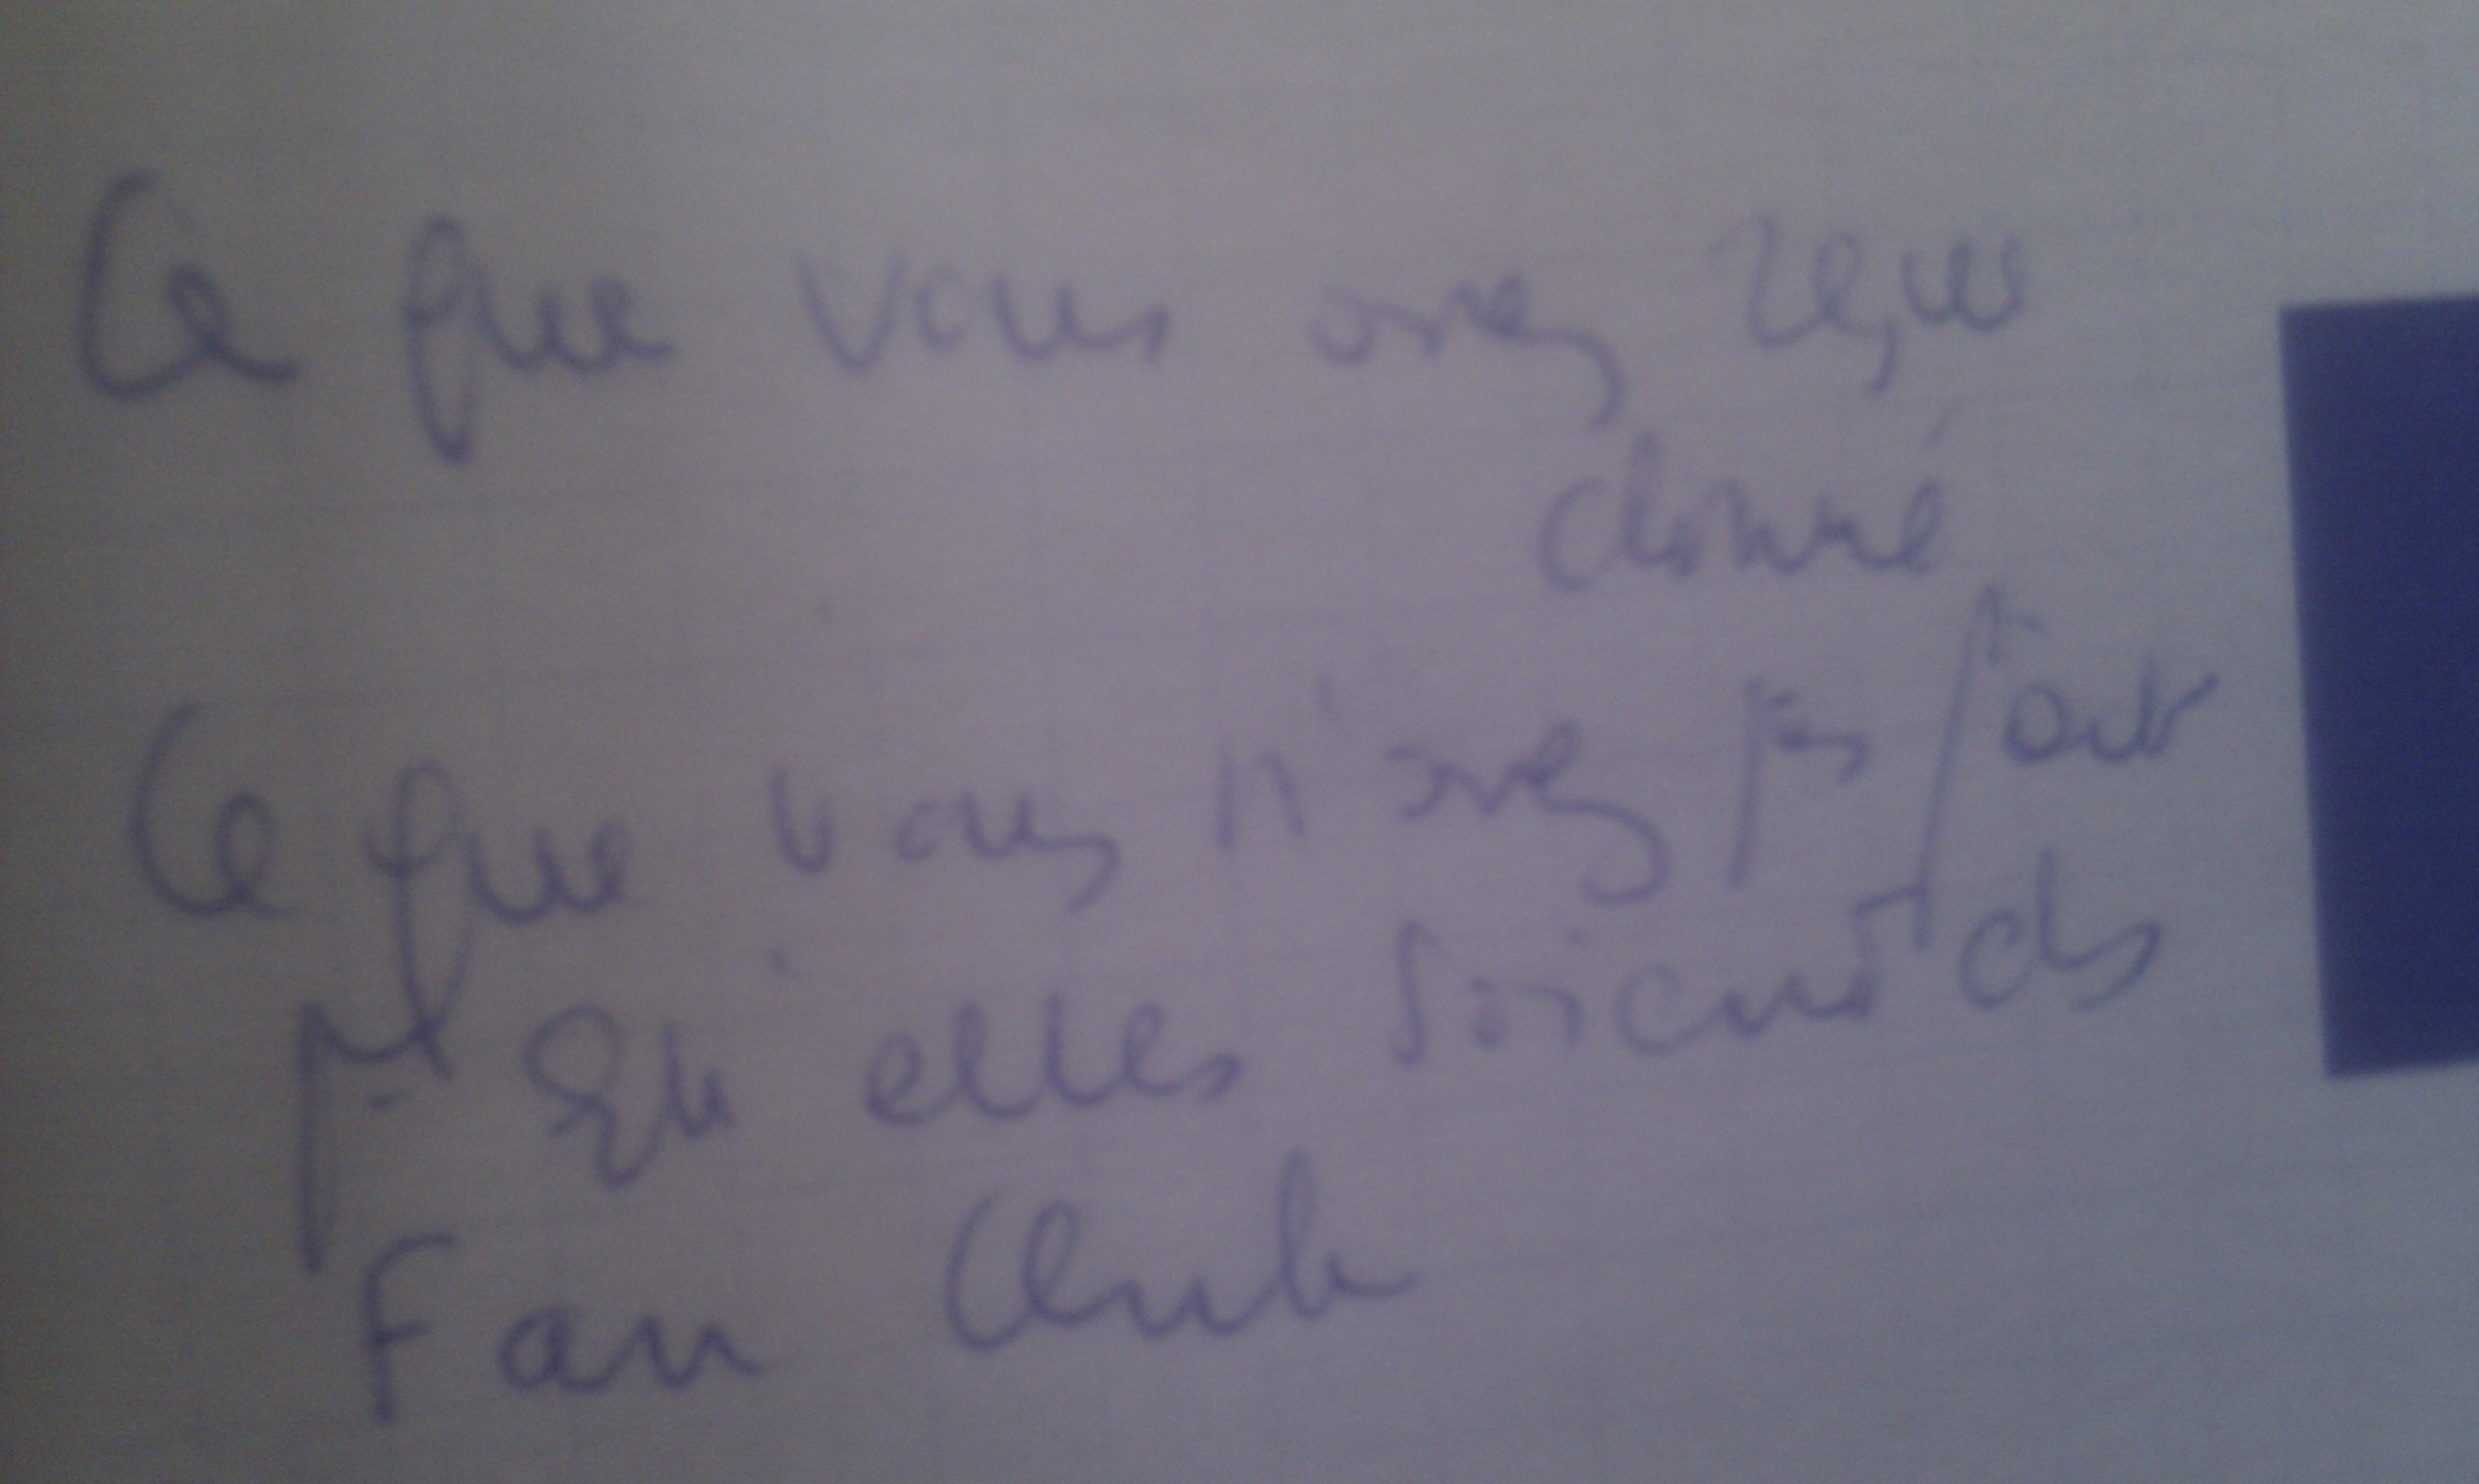 Ce que vous avez reçu
donné
Ce que vous n'avez pas fait
pr Qu'elles soient ds
Fan Club